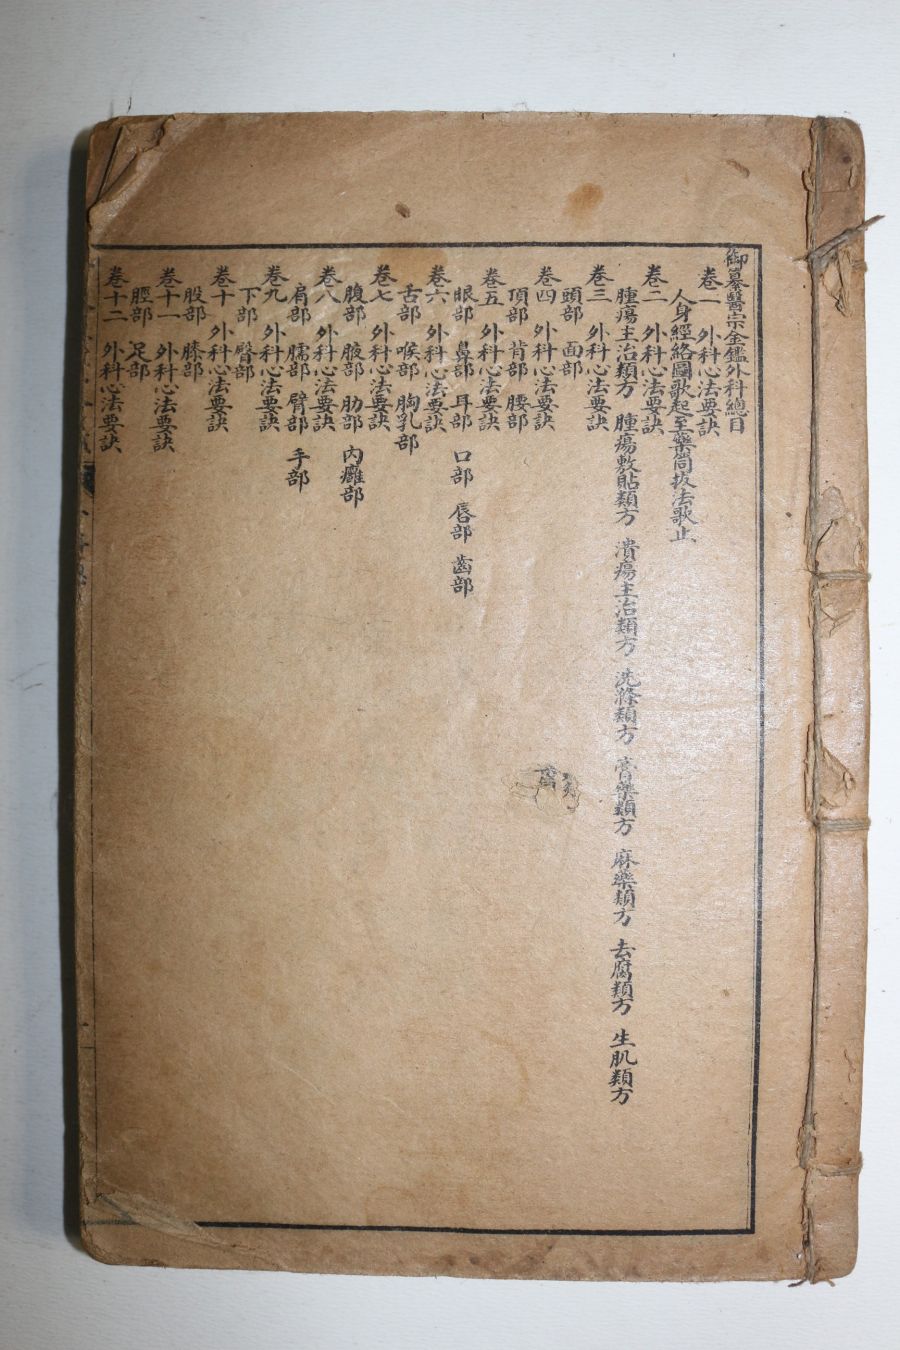 御纂醫宗金鑑外科總目
卷一　外科心法要訣
人身經絡圖歌起至藥筒拔法歌止
卷二　外科心法要訣
腫瘍主治類方　腫瘍敷貼類方　潰瘍主治類方　洗滌類方　膏藥類方　麻藥類方　去腐類方　生肌類方
卷三　外科心法要訣
頭部　面部
卷四　外科心法要訣
項部　背部　腰部
卷五　外科心法要訣
眼部　鼻部　耳部　口部　唇部　齒部
卷六　外科心法要訣
舌部　喉部　胸乳部
卷七　外科心法要訣
腹部　腋部　肋部　內癰部
卷八　外科心法要訣
肩部　臑部　臂部　手部
卷九　外科心法要訣
下部　臀部
卷十　外科心法要訣
股部　膝部
卷十一　外科心法要訣
脛部　足部
卷十二　外科心法要訣